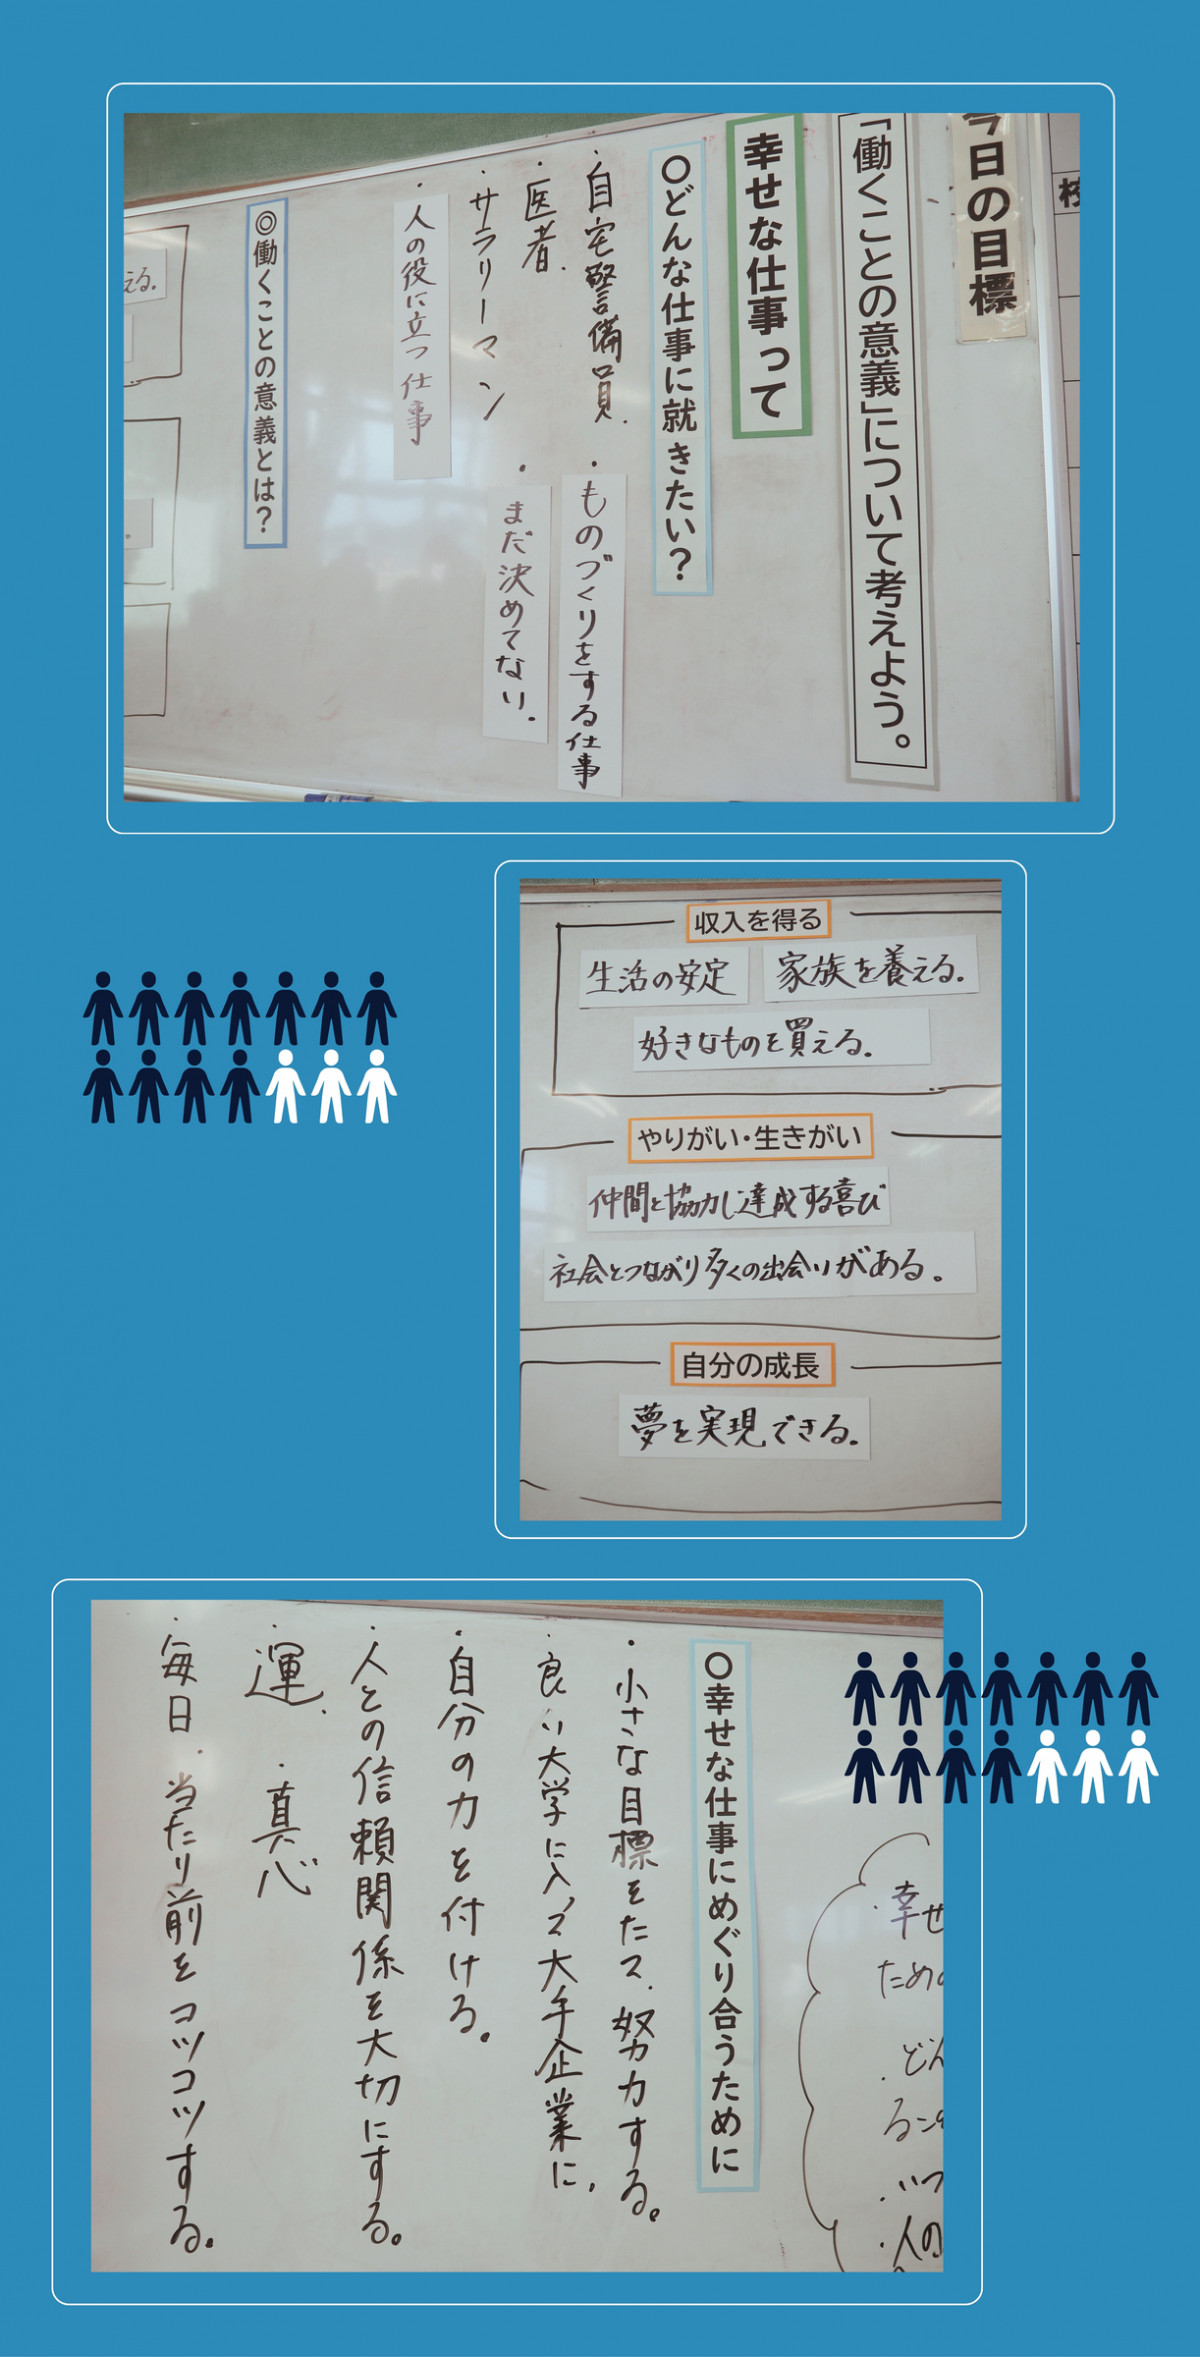 今日の目標
「働くことの意義」について考えよう。
幸せな仕事って
〇どんな仕事に就きたい?
・自宅警備員.
・ものづくりをする仕事
・医者.
・まだ決めてない.
・サラリーマン
・人の役に立つ仕事
◎働くことの意義とは?
える。
収入を得る
生活の安定
家族を養える。
好きなものを買える。
やりがい・生きがい
仲間と協力し達成する喜び
社会とつながり多くの出会いがある。
自分の成長
夢を実現できる。
・幸せ
ため
・どん
るこ
・いつ
・人の
〇幸せな仕事にめぐり合うために
・小さな目標をたて、努力する。
・良い大学に入って大手企業に.
・自分の力を付ける。
・人との信頼関係を大切にする。
・運、
・真心
・毎日、当たり前をコツコツする。